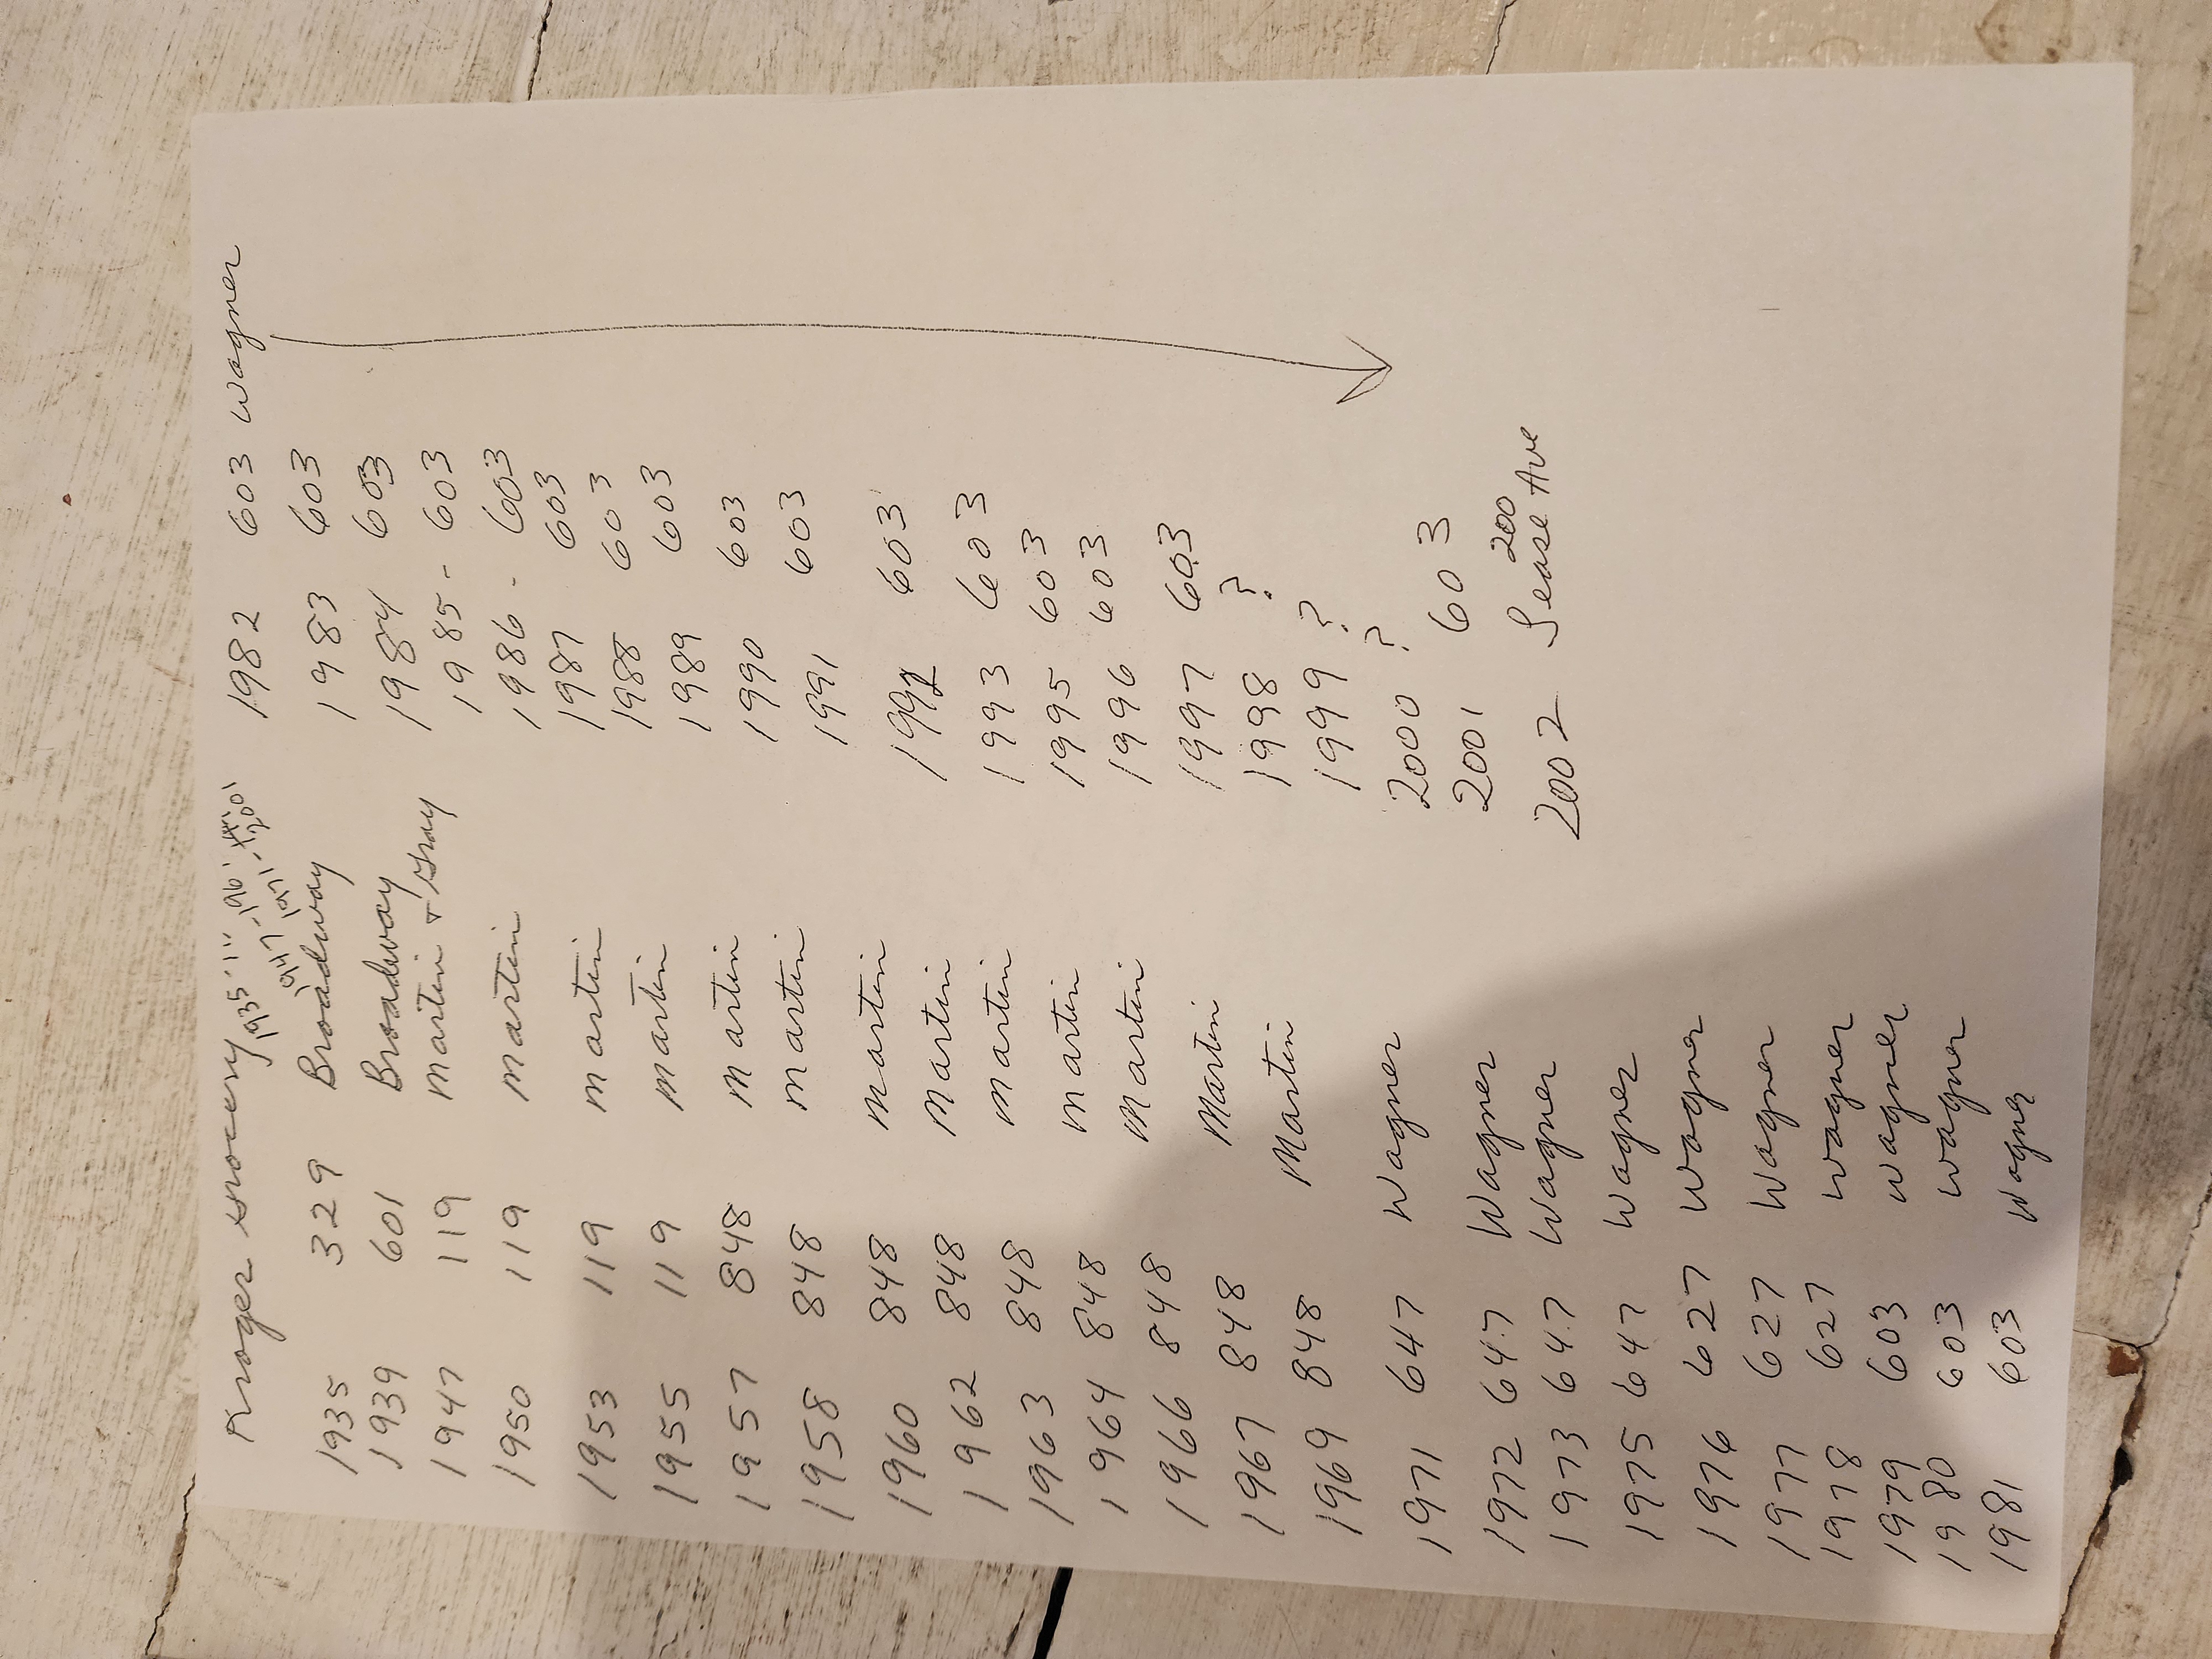 Kroger Grocery
1935 329 Broadway
1939 601 Broadway
1947 119 Martin + Gray
1950 119 Martin
1953 119 Martin
1955 119 Martin
1957 848 Martin
1958 848 Martin
1960 848 Martin
1962 848 Martin
1963 848 Martin
1964 848 Martin
1966 848 Martin
1967 848 Martin
1969 848 Martin
1971 647 Wagner
1972 647 Wagner
1973 647 Wagner
1975 647 Wagner
1976 627 Wagner
1977 627 Wagner
1978 627 Wagner
1979 603 Wagner
1980 603 Wagner
1981 603 Wagner
1982 603 Wagner
1983 603
1984 603
1985 - 603
1986 - 603
1987 603
1988 603
1989 603
1990 603
1991 603
1992 603
1993 603
1995 603
1996 603
1997 603
1998 ?
1999 ?
2000 ?
2001 603
200
2002 Sease Ave